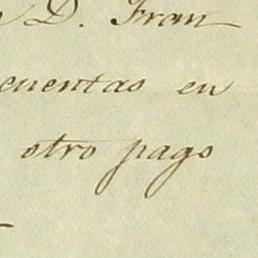 D. Fran
cuentas en
otro pago